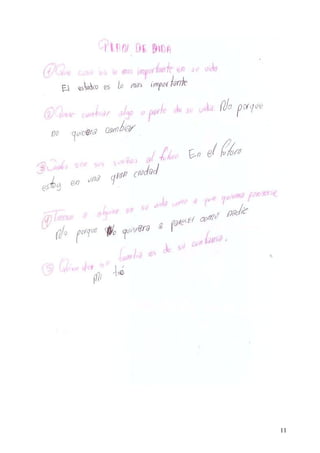 PLAN DE BIDA
① Que cosa es lo mas importante en su vida
El estudio es lo mas importante
② Desea cambiar algo o parte de su vida No porque
no quiera cambiar
③ Cuales son sus sueños al futuro En el fotoro
estoy en una gran ciudad
④ Tienes a alguien en su vida como a que quisiera parecerse
No porque No quisiera a parecer como nadie
⑤ Quien de su familia es de su confianza.
Mi tié
11